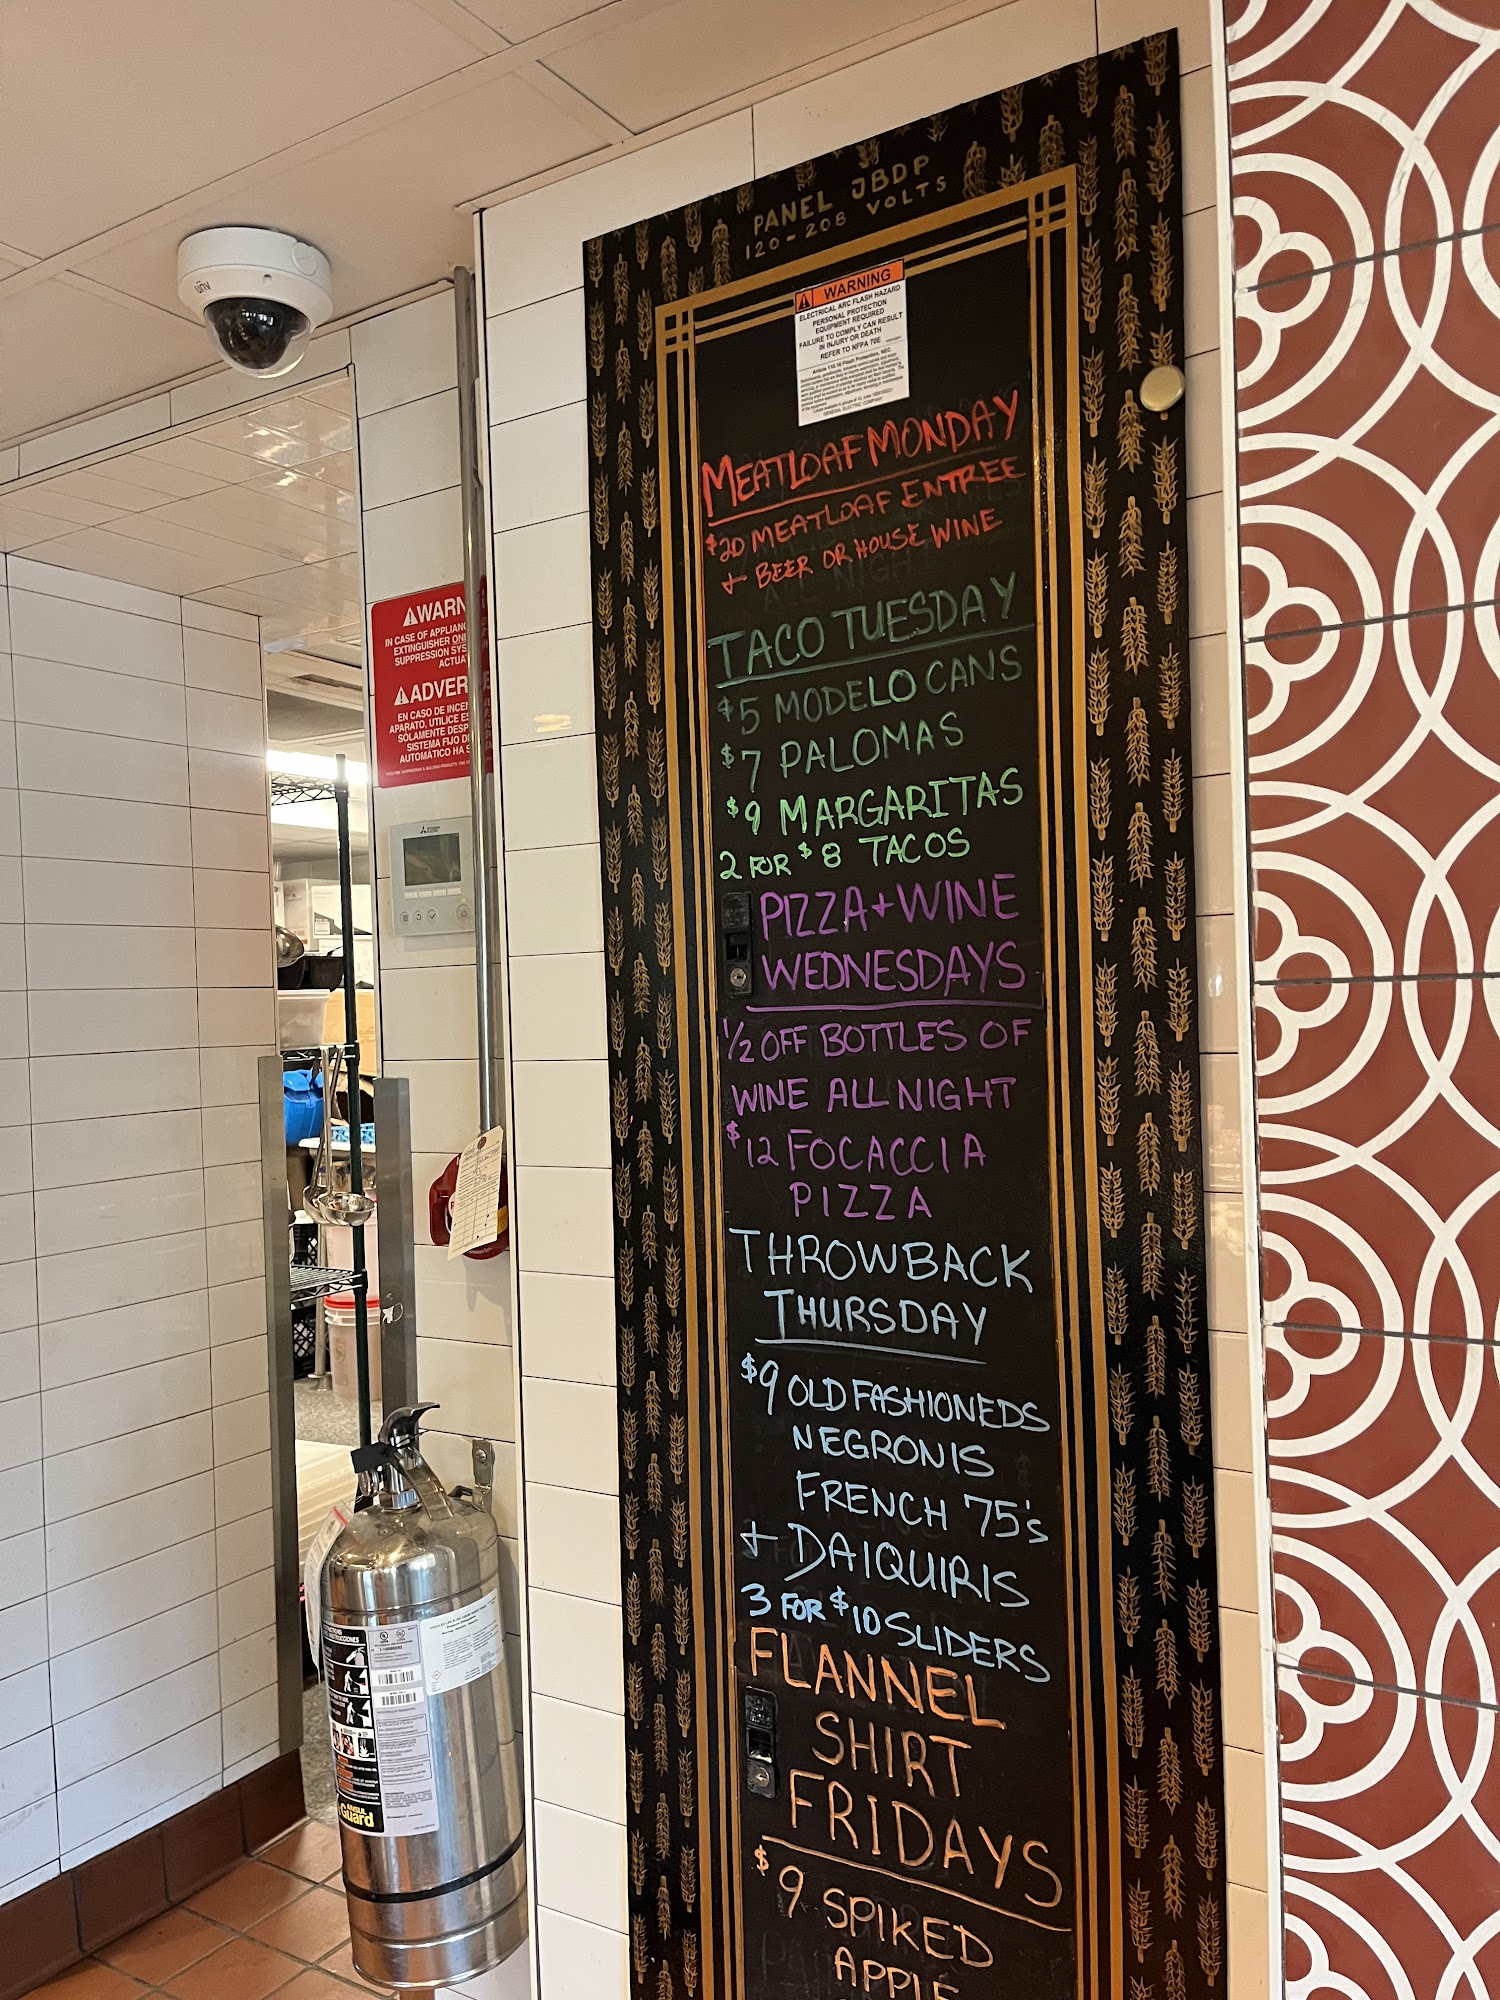 PANEL JBDP
120-208 VOLTS
WARNING
ELECTRICAL ARC FLASH HAZARD
PERSONAL PROTECTION
EQUIPMENT REQUIRED
FAILURE TO COMPLY CAN RESULT
IN INJURY OR DEATH
REFER TO NFPA 70E
GENERAL ELECTRIC COMPANY
MEATLOAF MONDAY
$20 MEATLOAF ENTREE
+ BEER OR HOUSE WINE
TACO TUESDAY
$5 MODELO CANS
$7 PALOMAS
$9 MARGARITAS
2 FOR $8 TACOS
PIZZA + WINE
WEDNESDAYS
1/2 OFF BOTTLES OF
WINE ALL NIGHT
$12 FOCACCIA
PIZZA
THROWBACK
THURSDAY
$9 OLD FASHIONEDS
NEGRONIS
FRENCH 75's
+ DAIQUIRIS
3 FOR $10 SLIDERS
FLANNEL
SHIRT
FRIDAYS
$9 SPIKED
APPLE
unv
WARN
IN CASE OF APPLIANC
EXTINGUISHER ONL
SUPPRESSION SYS
ACTUA
ADVER
EN CASO DE INCEN
APARATO, UTILICE ES
SOLAMENTE DESP
SISTEMA FIJO D
AUTOMATICO HA S
ANSUL
Guard